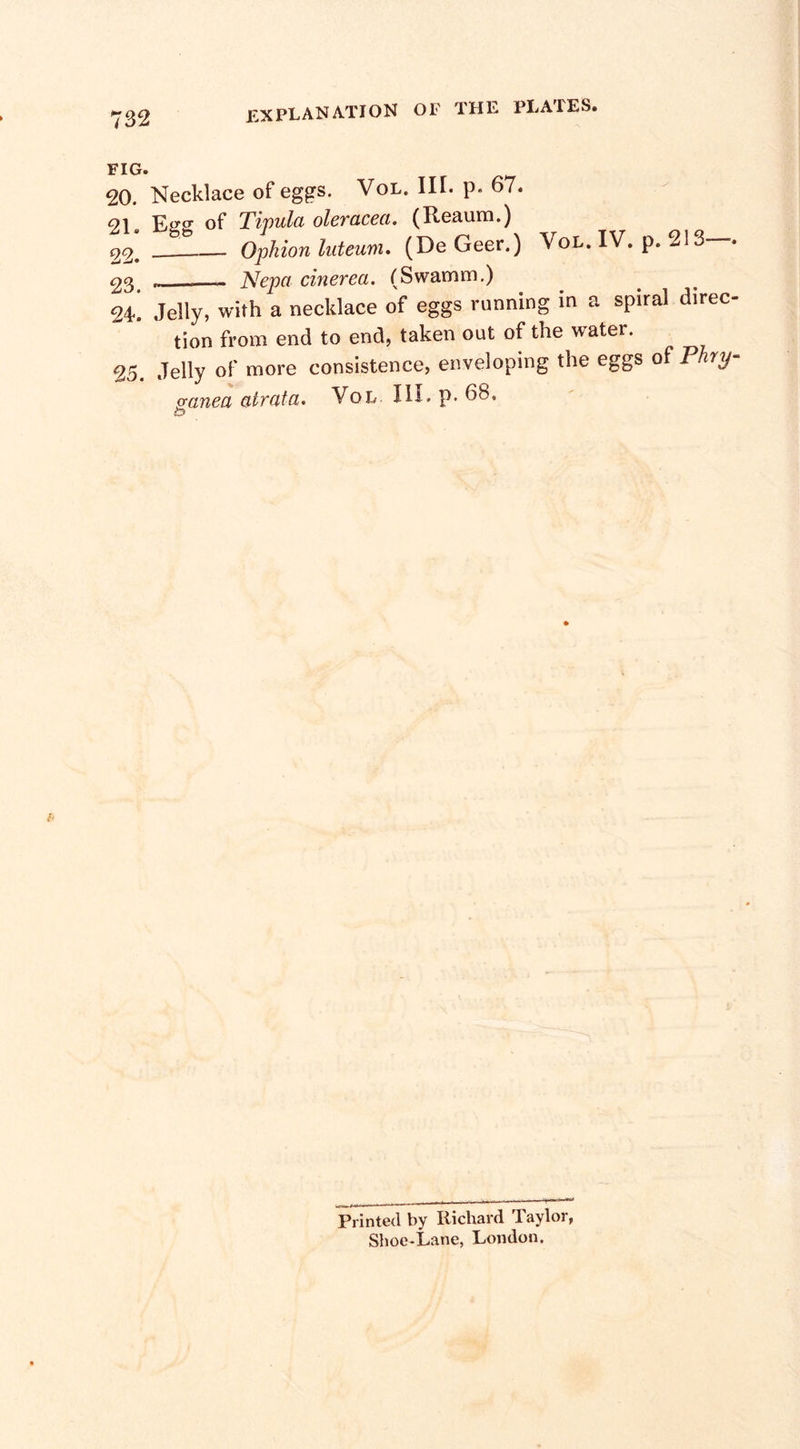 732 EXPLANATION OF THE PLATES.
FIG.
20. Necklace of eggs. VOL. III. p. 67.
21. Egg of Tipula oleracea. (Reaum.)
22. ——— Ophion luteum. (De Geer.) VOL. IV. p. 213—.
23. ——— Nepa cinerea. (Swamm.)
24. Jelly, with a necklace of eggs running in a spiral direc-
tion from end to end, taken out of the water.
25. Jelly of more consistence, enveloping the eggs of Phry-
ganea atrata. VOL. III. p. 68.
Printed by Richard Taylor,
Shoe-Lane, London.